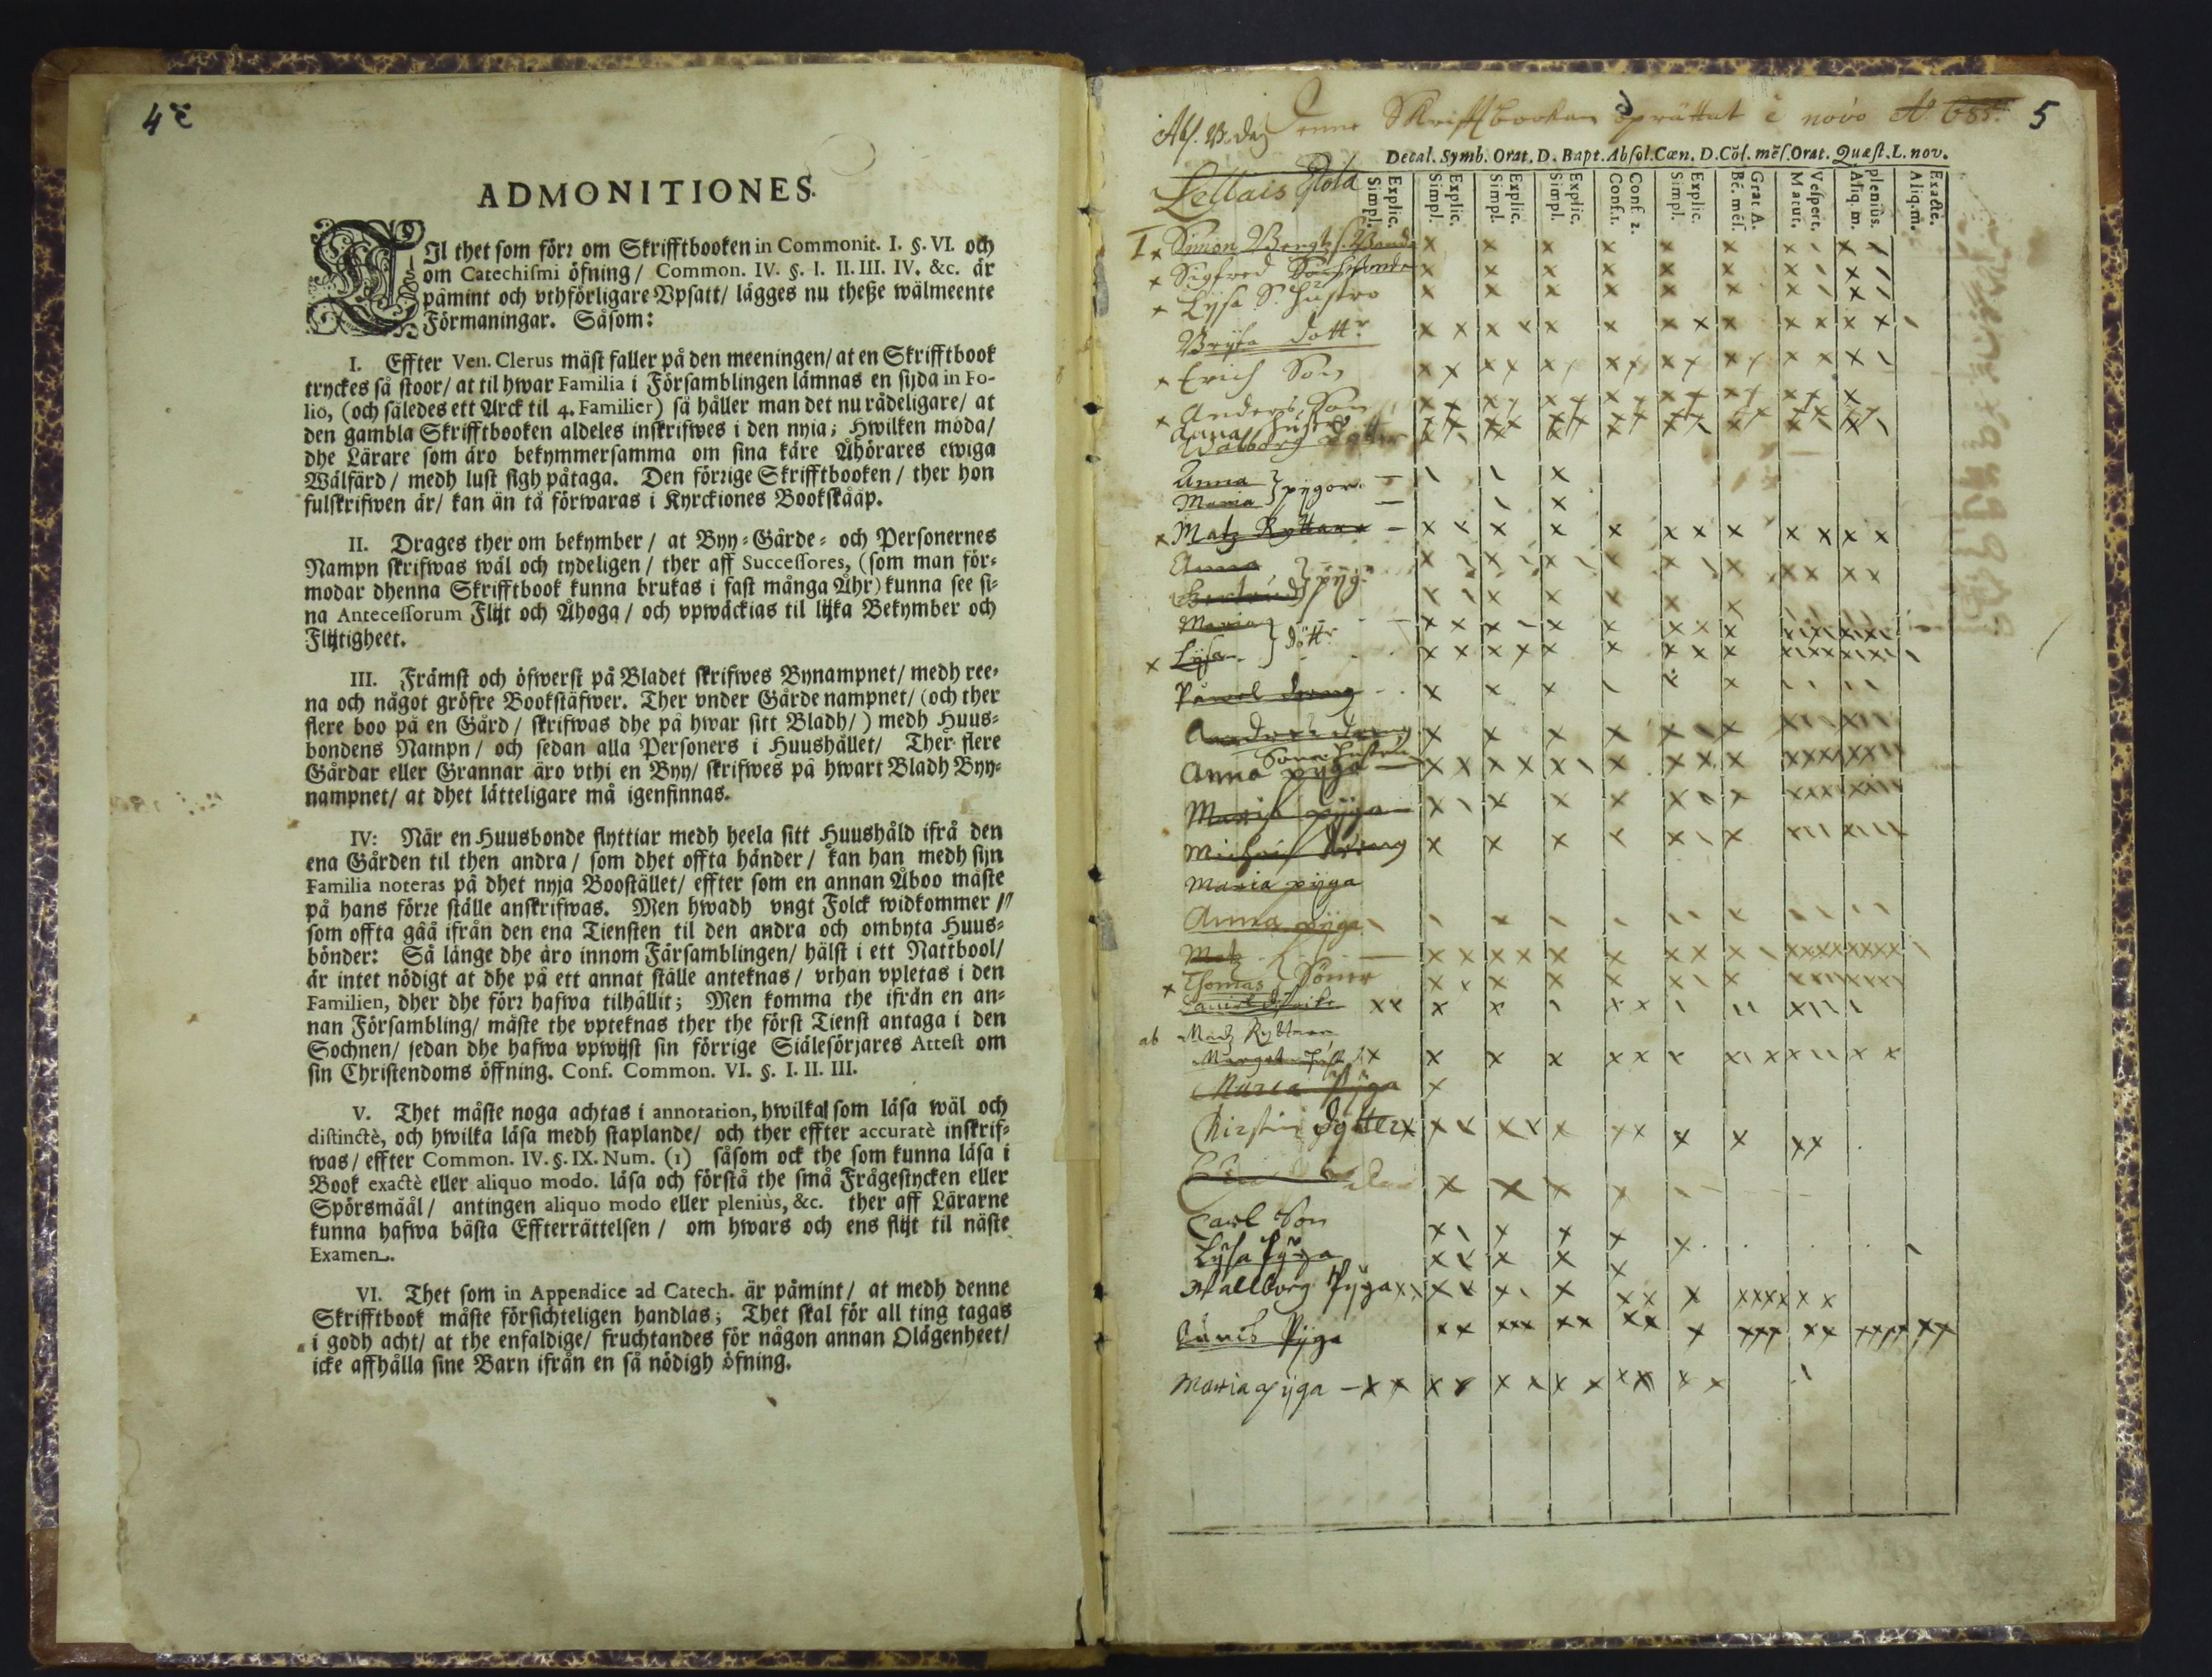 4
ADMONITIONES.
TIl thet som förr om Skrifftbooken in Commonit. I. §. VI. och
om Catechismi öfning/ Common. IV. §. I. II. III. IV. &c. är
påmint och vthförligare Vpsatt/ lägges nu theße wälmeente
Förmaningar. Såsom:
I. Effter Ven. Clerus mäst faller på den meeningen/ at en Skrifftbook
tryckes så stoor/ at til hwar Familia i Församblingen lämnas en sijda in Fo-
lio, (och således ett Arck til 4. Familier) så håller man det nu rådeligare/ at
den gambla Skrifftbooken aldeles inskrifwes i den nyia; Hwilken möda/
dhe Lärare som äro bekymmersamma om sina käre Åhörares ewiga
Wälfärd/ medh lust sigh påtaga. Den förrige Skrifftbooken/ ther hon
fulskrifwen är/ kan än tå förwaras i Kyrckiones Bookskååp.
II. Drages ther om bekymber/ at Byy-Gårde- och Personernes
Nampn skrifwas wäl och tydeligen/ ther aff Successores, (som man för-
modar dhenna Skrifftbook kunna brukas i fast många Åhr) kunna see si-
na Antecessorum Flijt och Åhoga/ och vpwäckias til lijka Bekymber och
Flijtigheet.
III. Främst och öfwerst på Bladet skrifwes Bynampnet/ medh ree-
na och något gröfre Bookstäfwer. Ther vnder Gårde nampnet/ (och ther
flere boo på en Gård/ skrifwas dhe på hwar sitt Bladh/) medh Huus-
bondens Nampn/ och sedan alla Persones i Huushållet/ Ther flere
Gårdar eller Grannar äro vthi en Byy/ skrifwes på hwart Bladh Byy-
nampnet/ at dhet lätteligare må igenfinnas.
IV: När en Huusbonde flyttiar medh heela sitt Huushåld ifrå den
ena Gården til then andra/ som dhet offta händer/ kan han medh sijn
Familia noteras på dhet nyja Booställe/ effter som en annan Åboo måste
på hans förre ställe anskrifwas. Men hwadh vngt Folck widkommer/
som offta gåå ifrån den ena Tiensten til den andra och ombyta Huus-
bönder: Så länge dhe äro innom Färsamblingen/ hälst i ett Nattbool/
är intet nödigt at dhe på ett annat ställe anteknas/ vthan vpletas i den
Familien, dher dhe förr hafwa tilhållit; Men komma the ifrån en an-
nan Försambling/ måste the vpteknas ther the först Tienst antaga i den
Sochnen/ sedan dhe hafwa vpwijst sin förrige Siälesörjares Attest om
sin Christendoms öffning. Conf. Common. VI. §. I. II. III.
V. Thet måste noga achtas i annotation, hwilka som läsa wäl och
distinctè, och hwilka läsa medh staplande/ och ther effter accuratè inskrif-
was/ effter Common. IV. §. IX. Num. (1) såsom ock the som kunna läsa i
Book exactè eller aliquo modo. läsa och förstå the små Frågestycken eller
Spörsmåål/ antingen aliquo modo eller pleniùs, &c. ther aff Lärarne
kunna hafwa bästa Effterrättelsen/ om hwars och ens flijt til näste
Examen.
VI. Thet som in Appendice ad Catech. är påmint/ at medh denne
Skrifftbook måste försichteligen handlas; Thet skal för all ting tagas
i godh acht/ at the enfaldige/ fruchtandes för någon annan Olägenheet/
icke affhålla sine Barn ifrån en så nödigh öfning.
Denne Skrifftbookan oprättat è novo Ao 685. 5
Decal. Symb. Orat. D. Bapt. Absol. Cœn. D. Cōf. mēs. Orat. Quæst. L. nov.
Explic. Simpl. Explic. Simpl. Explic. Simpl. Explic. Simpl. Conf. 2. Conf. 1. Explic. Simpl. Grat A. Bē. mēs. Vesperr. Matut. pleniùs. Aliq. m. Exactè. Aliq. m.
Lellais Rota
I x Simon
x Sigfred
x Lysa S. hustro
Brijta dottr
x Erich Son
x Anders Son
Anna hustr
Walborg dotter
Anna
Maria } pygor
x Matz Ryttare
Anna
Gertrud } pyg
Maria
x Lysa } döttr
Påwel dreng
Anders dreng
Anna pyga
Maria pyga
Michel dreng
Maria pyga
Anna pyga
Matz
x Thomas } Söner
ab Matz Ryttare
Margeta
Maria Pyga
Kirstin dotter
Carl Son
Lysa Pyga
Wallborg Pyga
Pyga
Maria pyga